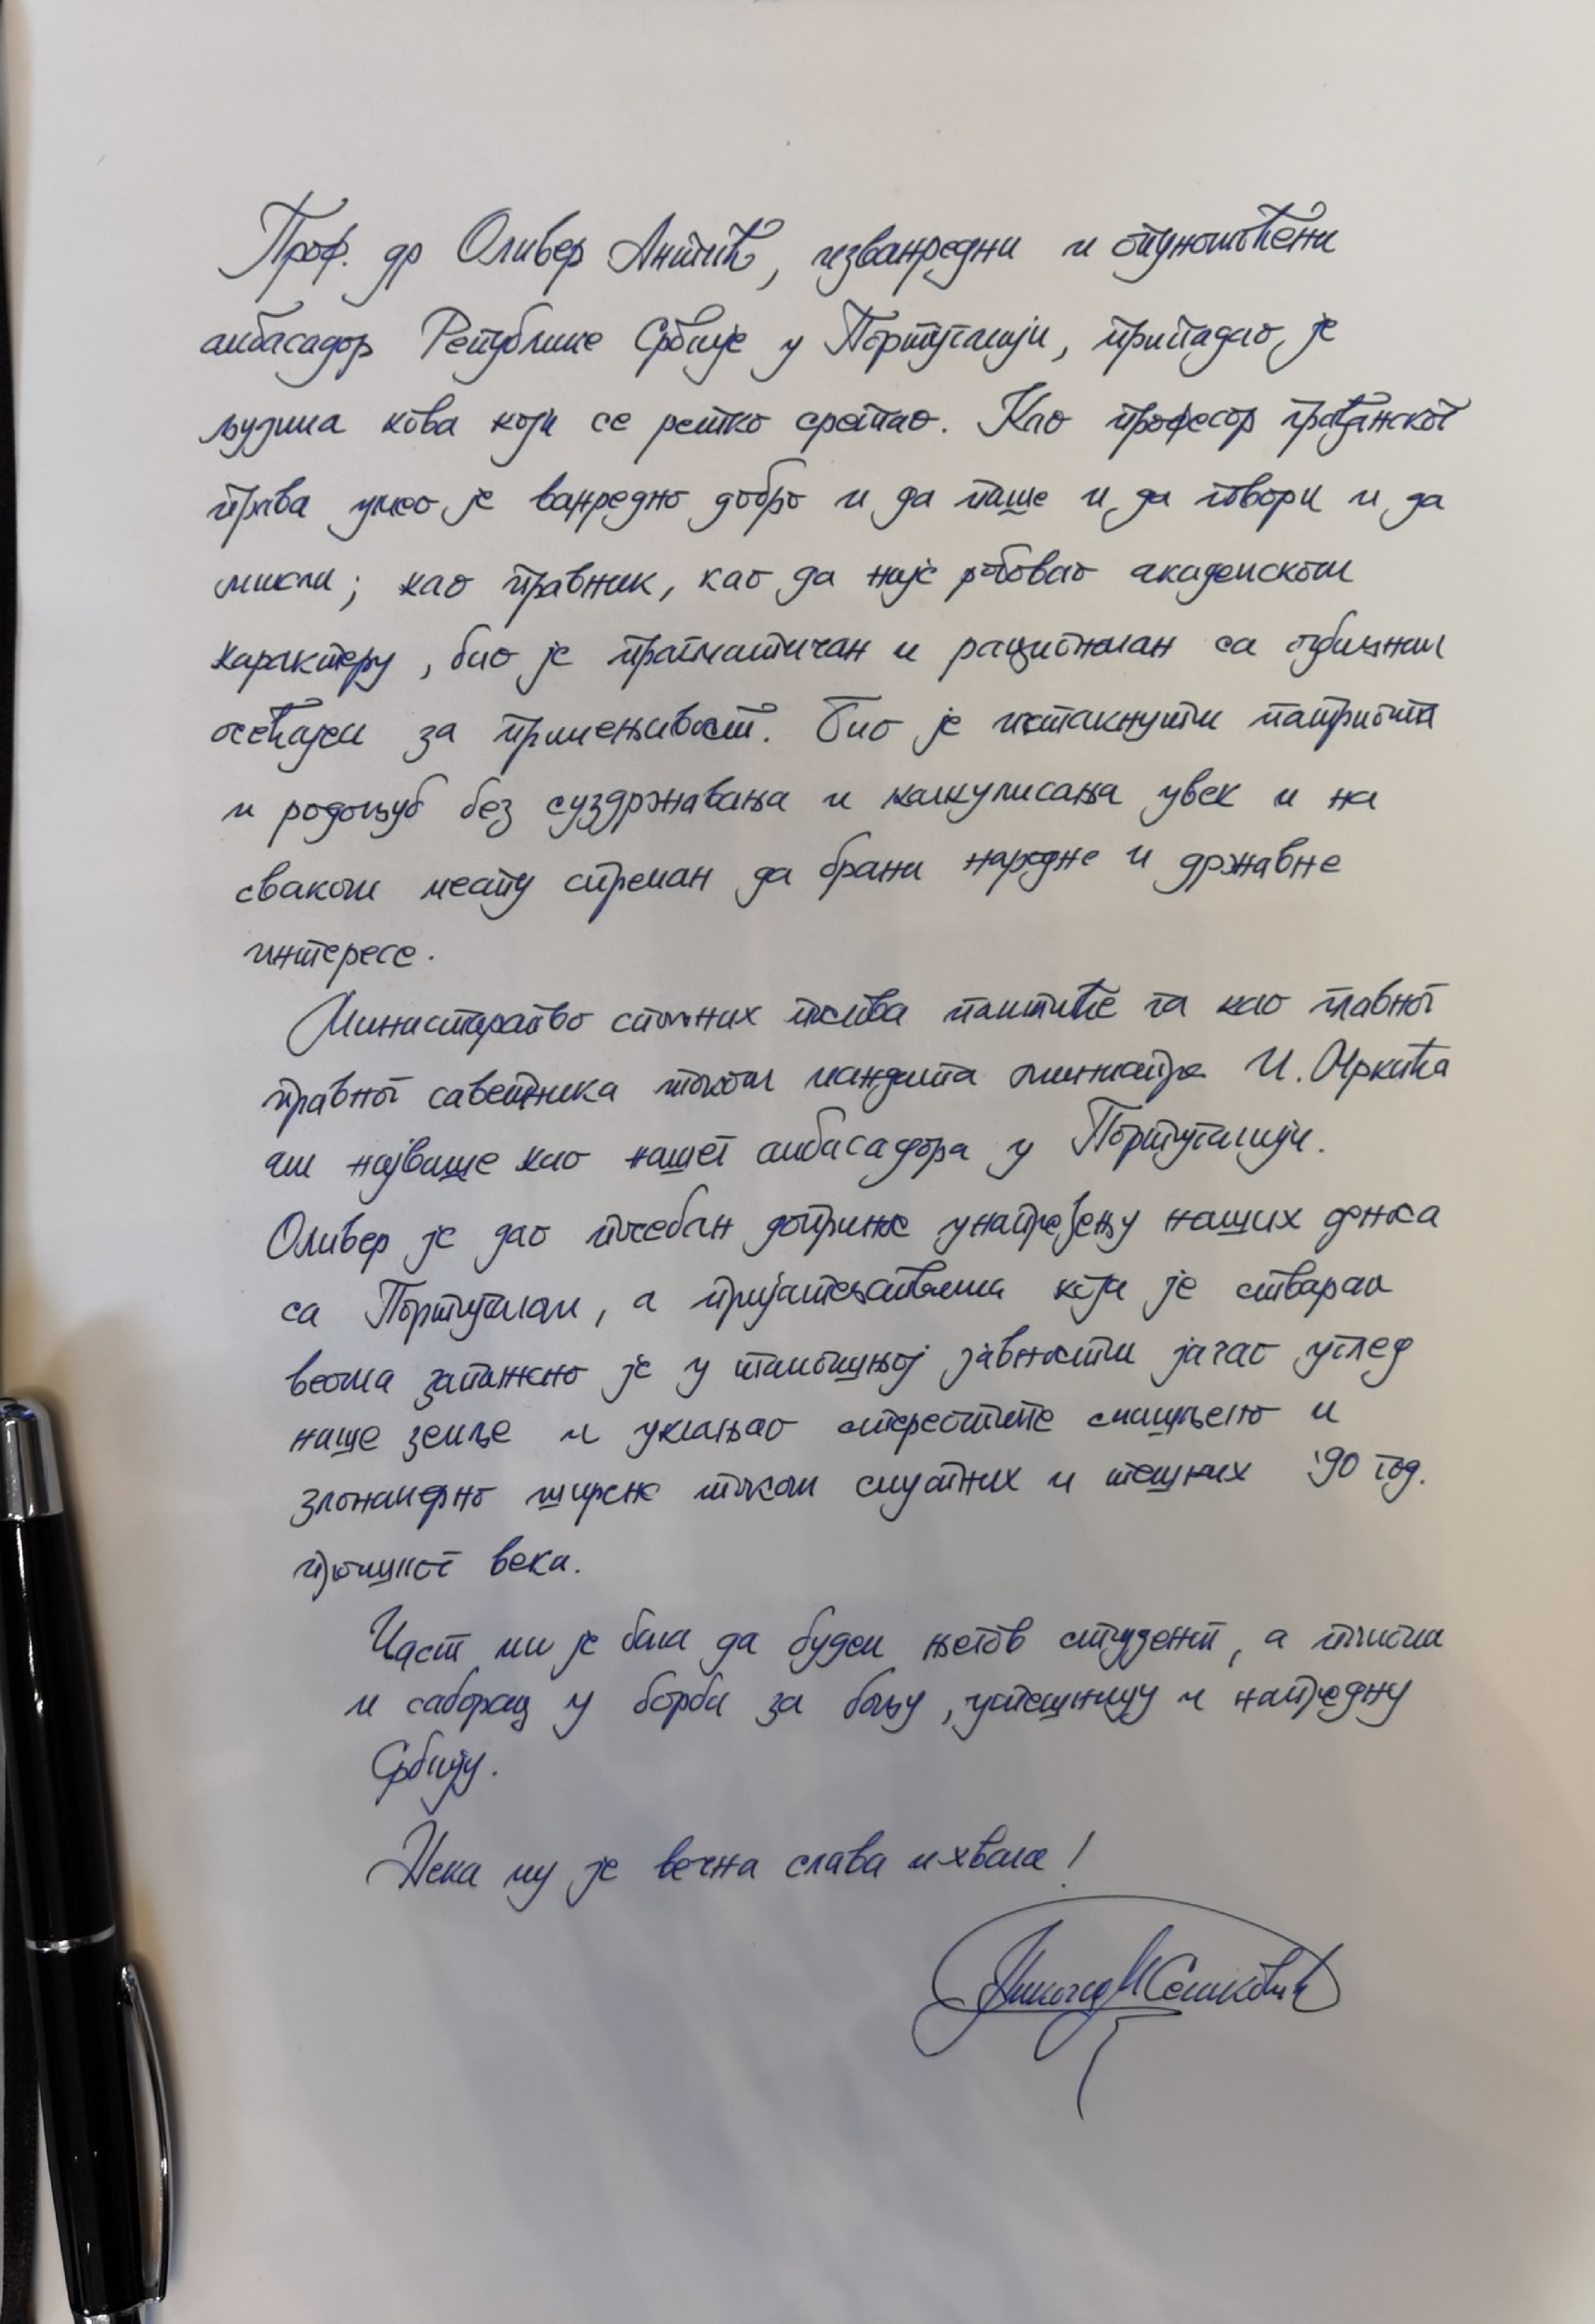 Проф. др Оливер Антић, изванредни и опуномоћени
амбасадор Републике Србије у Португалији, припадао је
људима кова који се ретко сретао. Као професор грађанског
права умео је ванредно добро и да пише и да говори и да
мисли; као правник, као да није робовао академском
карактеру, био је прагматичан и рационалан са обичним
осећајем за применљивост. Био је истакнути патриота
и родољуб без суздржавања и калкулисања увек и на
сваком месту спреман да брани народне и државне
интересе.
Министарство спољних послова памтиће га као главног
правног саветника током мандата министра И. Мркића
али највише као нашег амбасадора у Португалији.
Оливер је дао посебан допринос унапређењу наших односа
са Португалом, а пријатељствима која је стварао
веома запажено је у тамошњој јавности јачао углед
наше земље и уклањао стереотипе смишљено и
злонамерно ширене током смутних и тешких '90 год.
прошлог века.
Част ми је била да будем његов студент, а потом
и саборац у борби за бољу, успешнију и напредну
Србију.
Нека му је вечна слава и хвала!